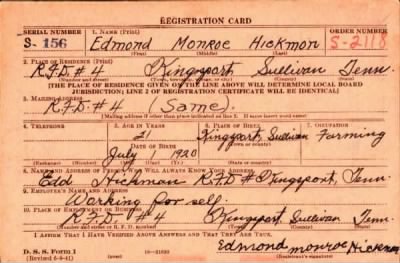 REGISTRATION CARD
SERIAL NUMBER 1. NAME (Print) ORDER NUMBER
S- 156 Edmond Monroe Hickmon S-2118
(First) (Middle) (Last)
2. PLACE OF RESIDENCE (Print)
R.F.D. # 4 Kingsport Sullivan Tenn.
[THE PLACE OF RESIDENCE GIVEN ON THE LINE ABOVE WILL DETERMINE LOCAL BOARD
JURISDICTION; LINE 2 OF REGISTRATION CERTIFICATE WILL BE IDENTICAL]
3. MAILING ADDRESS
R.F.D. # 4 (Same).
[Mailing address if other than place indicated on line 2. If same insert word same]
4. TELEPHONE 5. AGE IN YEARS 6. PLACE OF BIRTH 7. OCCUPATION
21 Kingsport, Sullivan Farming
DATE OF BIRTH (Town or county)
July 1920
(Exchange) (Number) (Mo.) (Day) (Yr.) (State or country)
8. NAME AND ADDRESS OF PERSON WHO WILL ALWAYS KNOW YOUR ADDRESS
Edd Hickman R.F.D. # Kingsport, Tenn.
9. EMPLOYER'S NAME AND ADDRESS
Working for self.
10. PLACE OF EMPLOYMENT OR BUSINESS
R.F.D. # 4 Kingsport Sullivan Tenn.
(Number and street or R. F. D. number) (Town) (County) (State)
I AFFIRM THAT I HAVE VERIFIED ABOVE ANSWERS AND THAT THEY ARE TRUE.
Edmond monroe Hickmon
D. S. S. Form 1
(Revised 6-9-41) (Registrant's signature)